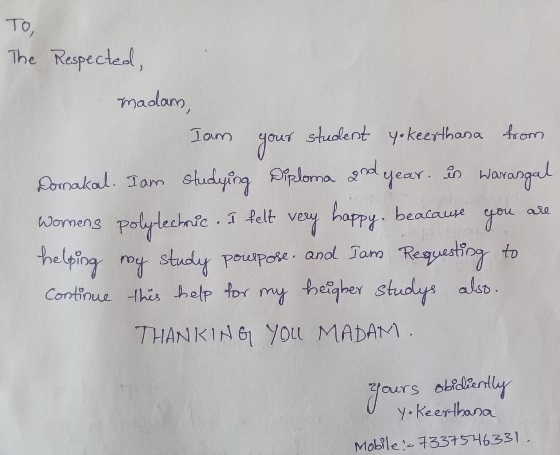 To,
The Respected,
madam,
Iam your student y.keerthana from
Dornakal. Iam studying Diploma 2nd year. in Warangal
Womens polytechnic. I felt very happy. beacause you are
helping my study pourpose. and Iam Requesting to
Continue this help for my heigher studys also.
THANKING YOU MADAM.
yours obidiently
Y.Keerthana
Mobile:- 7337546331.